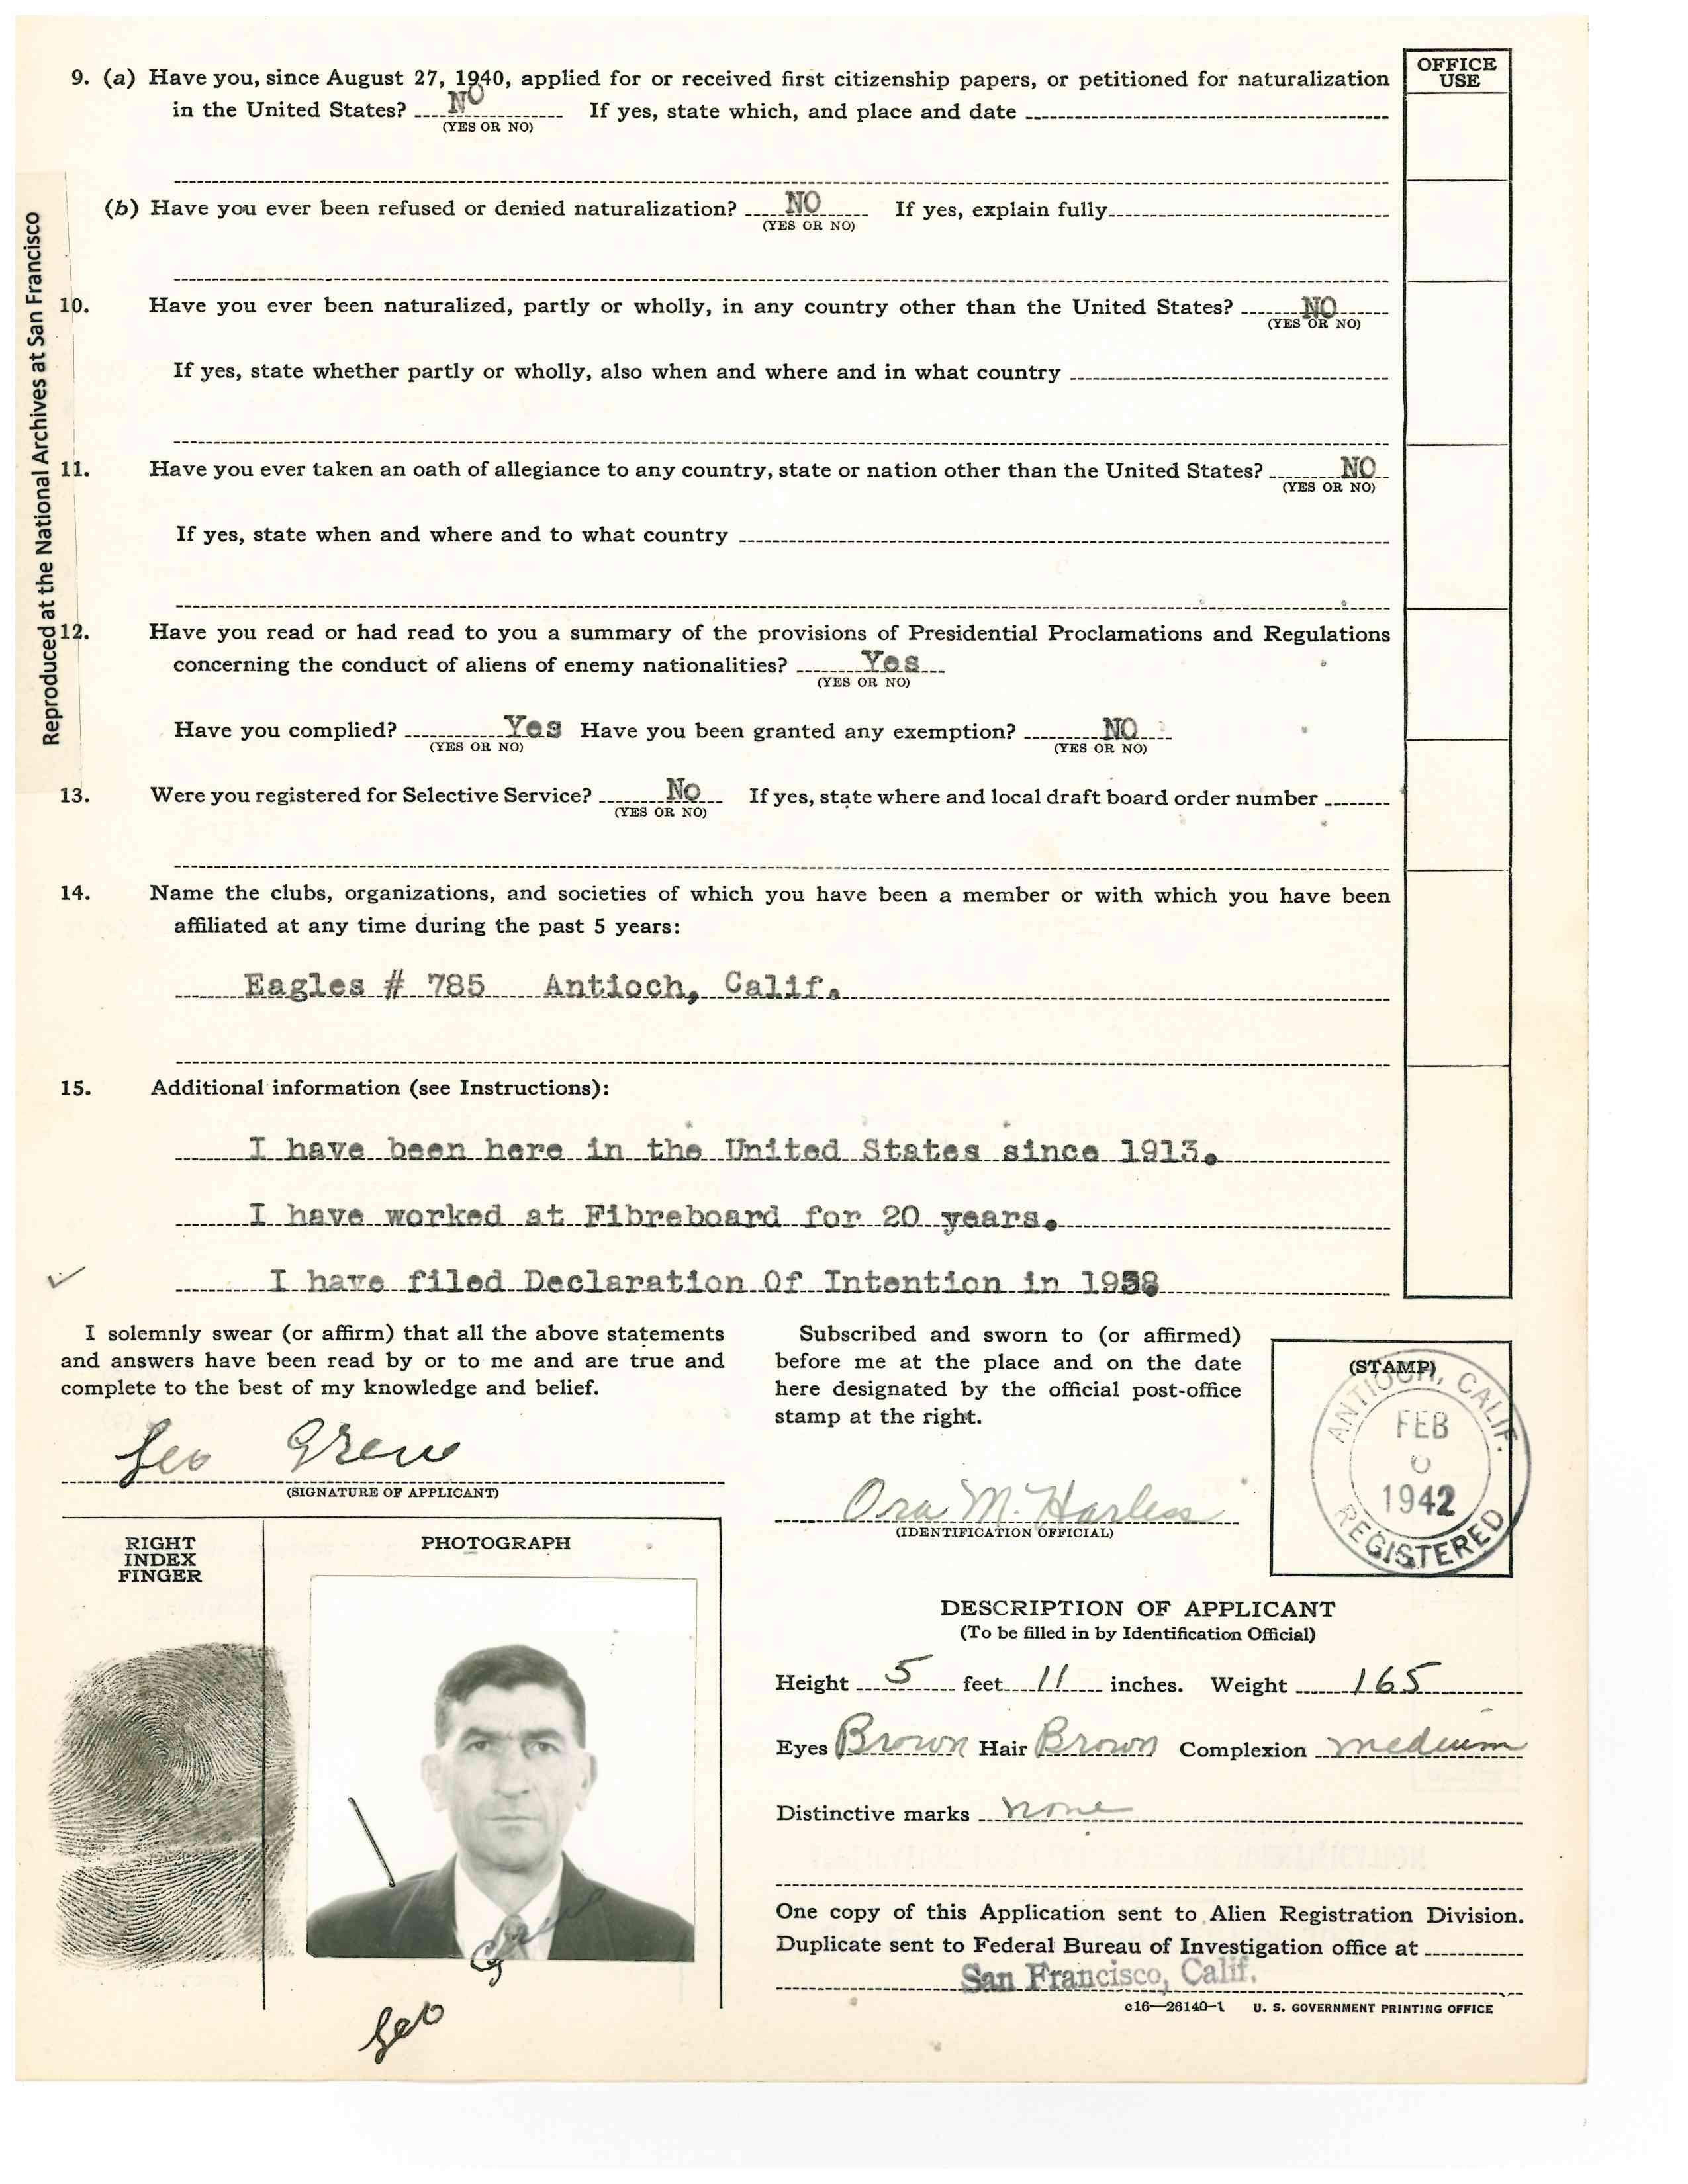 OFFICE
USE
9. (a) Have you, since August 27, 1940, applied for or received first citizenship papers, or petitioned for naturalization
in the United States? NO If yes, state which, and place and date
(YES OR NO)
(b) Have you ever been refused or denied naturalization? NO If yes, explain fully
(YES OR NO)
10. Have you ever been naturalized, partly or wholly, in any country other than the United States? NO
(YES OR NO)
If yes, state whether partly or wholly, also when and where and in what country
11. Have you ever taken an oath of allegiance to any country, state or nation other than the United States? NO
(YES OR NO)
If yes, state when and where and to what country
12. Have you read or had read to you a summary of the provisions of Presidential Proclamations and Regulations
concerning the conduct of aliens of enemy nationalities? Yes
(YES OR NO)
Have you complied? Yes Have you been granted any exemption? NO
(YES OR NO) (YES OR NO)
13. Were you registered for Selective Service? No If yes, state where and local draft board order number
(YES OR NO)
14. Name the clubs, organizations, and societies of which you have been a member or with which you have been
affiliated at any time during the past 5 years:
Eagles # 785 Antioch, Calif.
15. Additional information (see Instructions):
I have been here in the United States since 1913.
I have worked at Fibreboard for 20 years.
I have filed Declaration Of Intention in 1938
Reproduced at the National Archives at San Francisco
I solemnly swear (or affirm) that all the above statements
and answers have been read by or to me and are true and
complete to the best of my knowledge and belief.
Geo
(SIGNATURE OF APPLICANT)
Subscribed and sworn to (or affirmed)
before me at the place and on the date
here designated by the official post-office
stamp at the right.
Ora M. Harless
(IDENTIFICATION OFFICIAL)
(STAMP)
ANTIOCH, CALIF.
FEB
1942
REGISTERED
RIGHT
INDEX
FINGER
PHOTOGRAPH
Geo
DESCRIPTION OF APPLICANT
(To be filled in by Identification Official)
Height 5 feet 11 inches. Weight 165
Eyes Brown Hair Brown Complexion medium
Distinctive marks none
One copy of this Application sent to Alien Registration Division.
Duplicate sent to Federal Bureau of Investigation office at
San Francisco, Calif.
c16—26140-1 U. S. GOVERNMENT PRINTING OFFICE